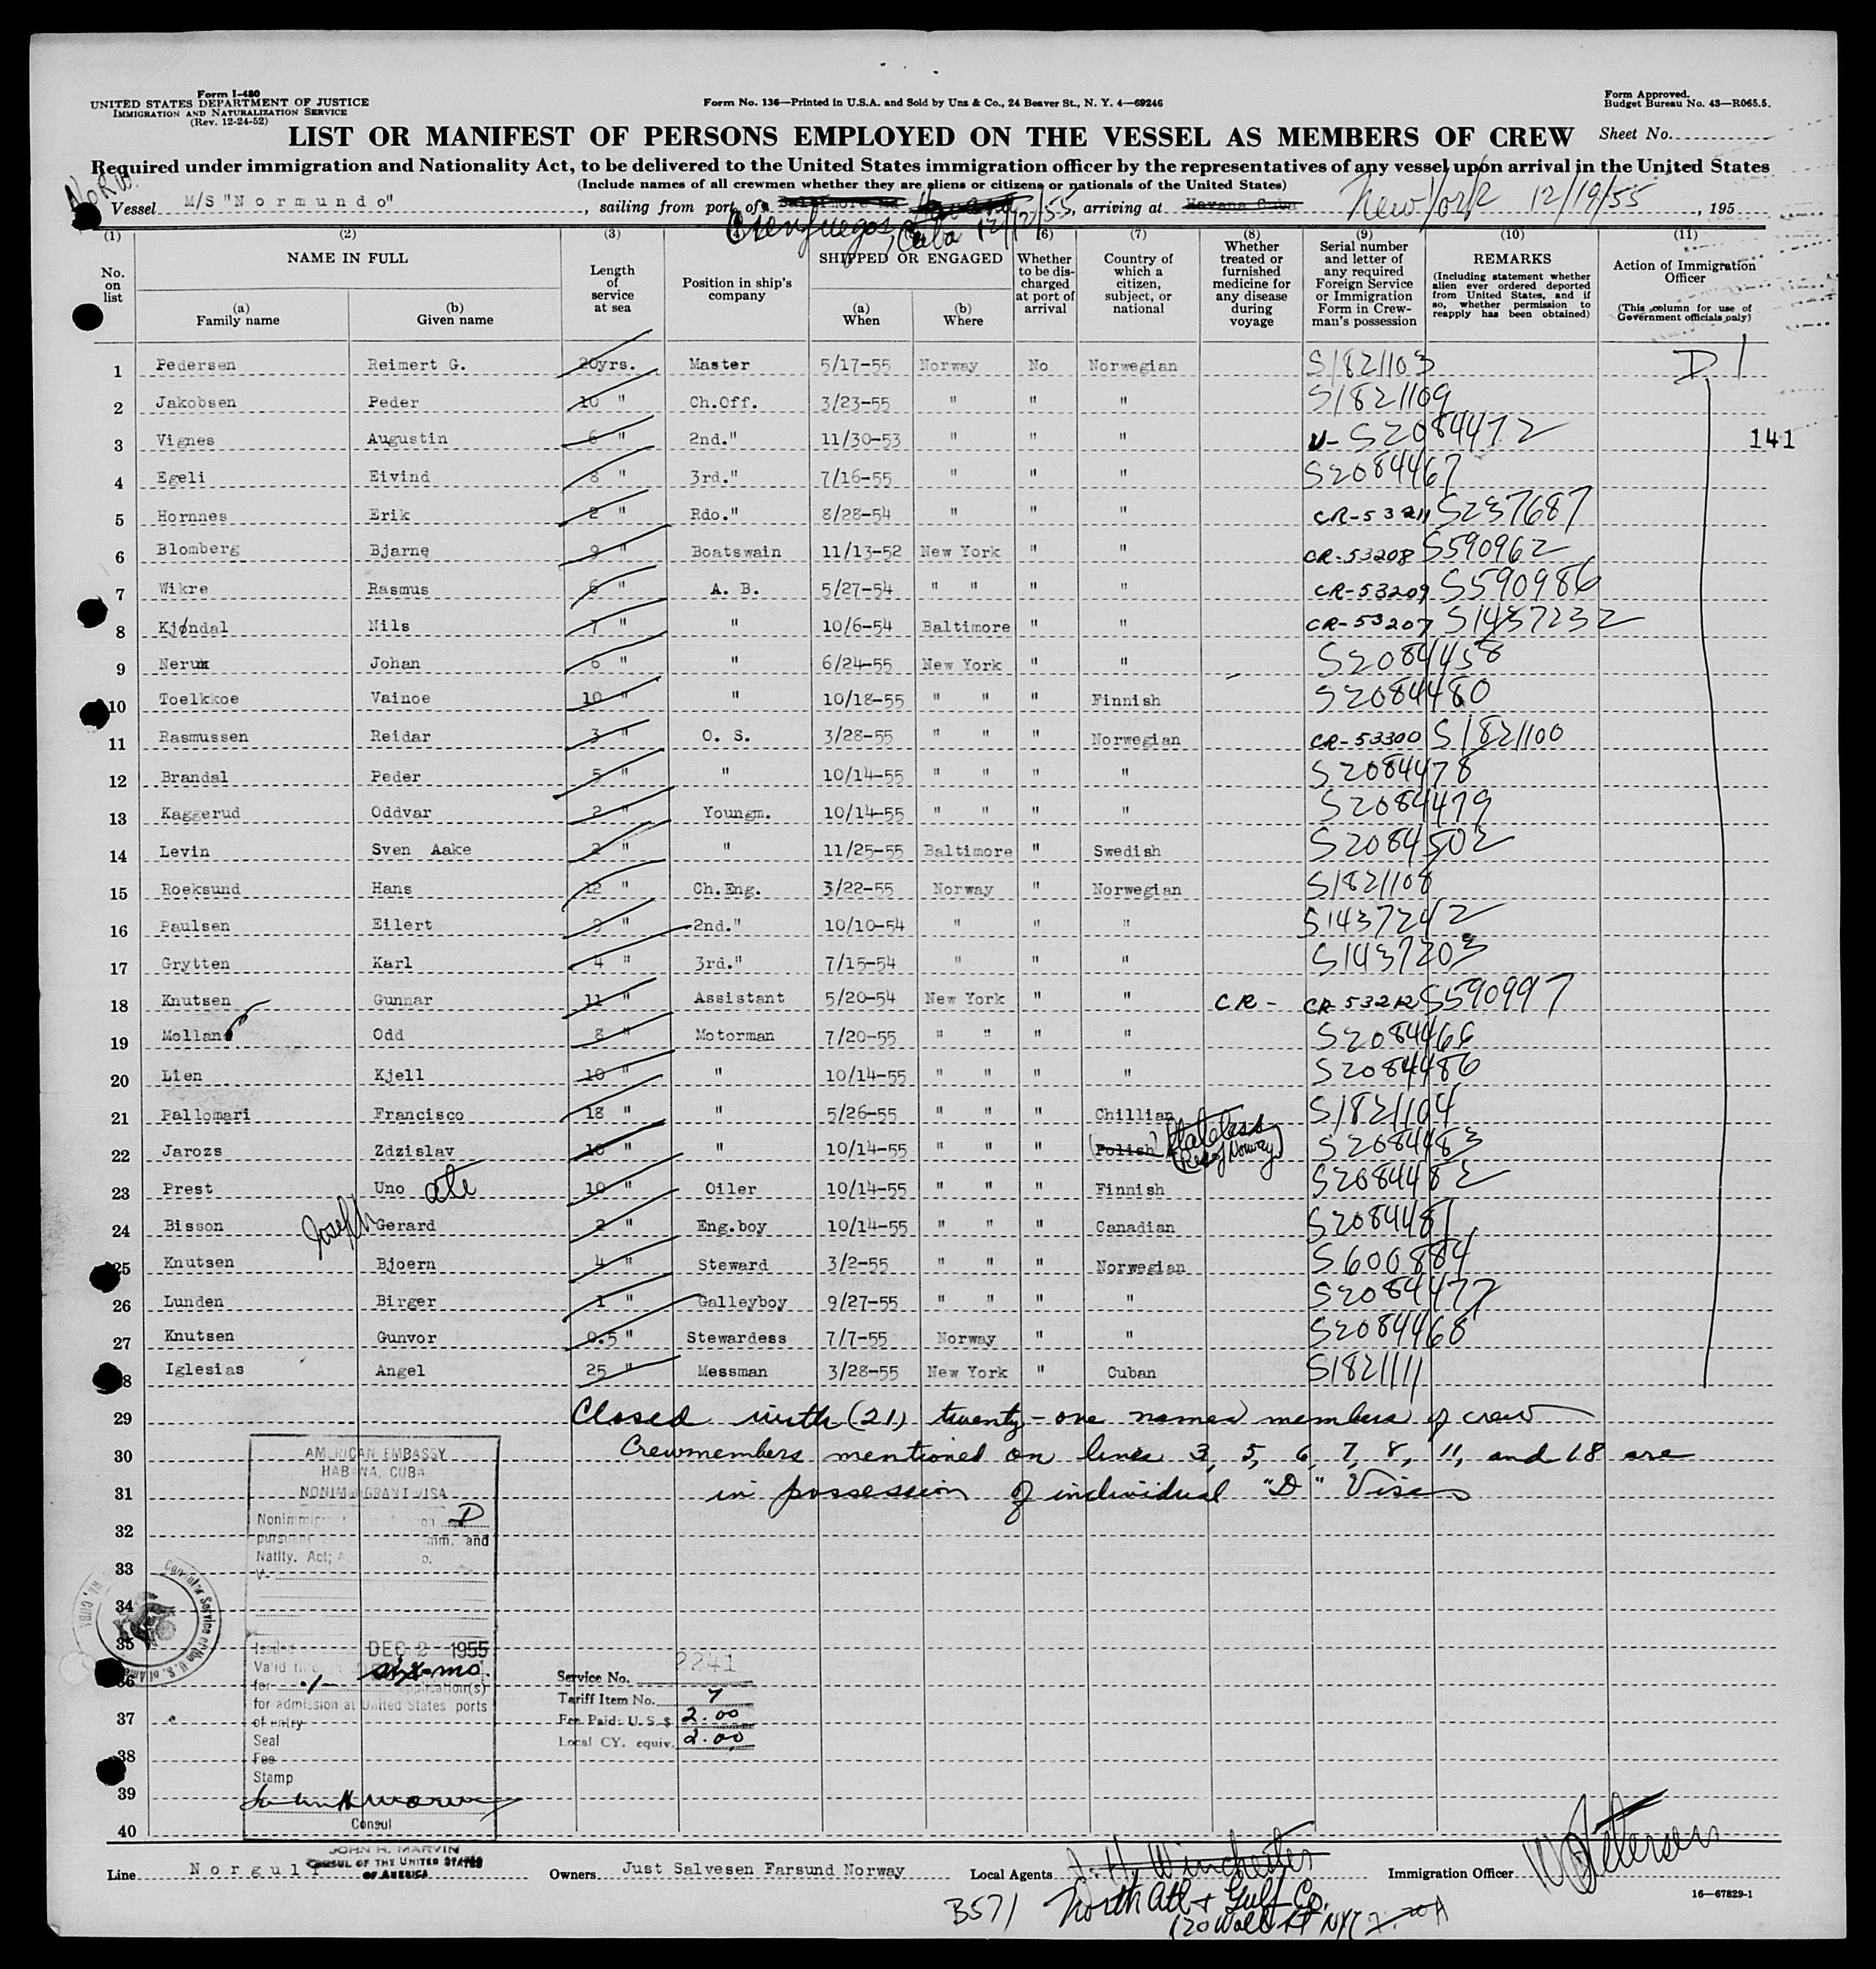 Form I-480
UNITED STATES DEPARTMENT OF JUSTICE
IMMIGRATION AND NATURALIZATION SERVICE
(Rev. 12-24-52)
Form No. 136—Printed in U.S.A. and Sold by Unz & Co., 24 Beaver St., N. Y. 4—69246
Form Approved.
Budget Bureau No. 43—R065.5.
LIST OR MANIFEST OF PERSONS EMPLOYED ON THE VESSEL AS MEMBERS OF CREW
Sheet No.
Required under immigration and Nationality Act, to be delivered to the United States immigration officer by the representatives of any vessel upon arrival in the United States
(Include names of all crewmen whether they are aliens or citizens or nationals of the United States)
Vessel M/S "Normundo", sailing from port of Baltimore Md Havana Cienfuegos, Cuba 12/12/55, arriving at Havana Cuba New York 12/19/55, 195
(1) No. on list
(2) NAME IN FULL (a) Family name (b) Given name
(3) Length of service at sea
(4) Position in ship's company
SHIPPED OR ENGAGED (a) When (b) Where
(6) Whether to be discharged at port of arrival
(7) Country of which a citizen, subject, or national
(8) Whether treated or furnished medicine for any disease during voyage
(9) Serial number and letter of any required Foreign Service or Immigration Form in Crewman's possession
(10) REMARKS (Including statement whether alien ever ordered deported from United States, and if so, whether permission to reapply has been obtained)
(11) Action of Immigration Officer (This column for use of Government officials only)
1 Pedersen Reimert G. 20yrs. Master 5/17-55 Norway No Norwegian S1821103 D
2 Jakobsen Peder 10 " Ch.Off. 3/23-55 " " " S1821109
3 Vignes Augustin 6 " 2nd." 11/30-53 " " " V- S2084472 141
4 Egeli Eivind 8 " 3rd." 7/16-55 " " " S2084467
5 Hornnes Erik 2 " Rdo." 8/28-54 " " " CR-53211 S237687
6 Blomberg Bjarne 9 " Boatswain 11/13-52 New York " " CR-53208 S590962
7 Wikre Rasmus 6 " A. B. 5/27-54 " " " " CR-53209 S590986
8 Kjøndal Nils 7 " " 10/6-54 Baltimore " " CR-53207 S1437232
9 Nerum Johan 6 " " 6/24-55 New York " " S2084458
10 Toelkkoe Vainoe 10 " " 10/18-55 " " " Finnish S2084480
11 Rasmussen Reidar 3 " O. S. 3/28-55 " " " Norwegian CR-53300 S1821100
12 Brandal Peder 5 " " 10/14-55 " " " " S2084478
13 Kaggerud Oddvar 2 " Youngm. 10/14-55 " " " " S2084479
14 Levin Sven Aake 2 " " 11/25-55 Baltimore " Swedish S2084502
15 Roeksund Hans 12 " Ch.Eng. 3/22-55 Norway " Norwegian S1821108
16 Paulsen Eilert 9 " 2nd." 10/10-54 " " " S1437242
17 Grytten Karl 4 " 3rd." 7/15-54 " " " S1437203
18 Knutsen Gunnar 11 " Assistant 5/20-54 New York " " CR - CR-53212 S590997
19 Molland Odd 8 " Motorman 7/20-55 " " " " S2084466
20 Lien Kjell 10 " " 10/14-55 " " " " S2084486
21 Pallomari Francisco 18 " " 5/26-55 " " " Chillian S1821104
22 Jarozs Zdzislav 10 " " 10/14-55 " " " (Polish) Stateless (Res of Norway) S2084483
23 Prest Uno 10 " Oiler 10/14-55 " " " Finnish S2084482
24 Bisson Joseph Gerard 2 " Eng.boy 10/14-55 " " " Canadian S2084481
25 Knutsen Bjoern 4 " Steward 3/2-55 " " " Norwegian S600884
26 Lunden Birger 1 " Galleyboy 9/27-55 " " " " S2084477
27 Knutsen Gunvor 0.5 " Stewardess 7/7-55 Norway " " S2084468
28 Iglesias Angel 25 " Messman 3/28-55 New York " Cuban S1821111
29 Closed with (21) twenty-one named members of crew
30 Crewmembers mentioned on lines 3, 5, 6, 7, 8, 11, and 18 are
31 in possession of individual "D" Visas
32
33
34
35
36
37
38
39
40
AMERICAN EMBASSY
HABANA, CUBA
NONIMMIGRANT VISA
D
Natlty. Act;
V-
DEC 2 1955
six-mo.
for application(s)
for admission at United States ports
of entry
Seal
Fee
Stamp
Consul
JOHN H. MARVIN
CONSUL OF THE UNITED STATES
OF AMERICA
Service No. 2241
Tariff Item No. 7
Fee Paid: U.S. $ 2.00
Local CY. equiv. 2.00
Line Norgulf
Owners Just Salvesen Farsund Norway
Local Agents J. H. Winchester
Immigration Officer
B571 North Atl & Gulf Co.
120 Wall St NYC
16—67829-1